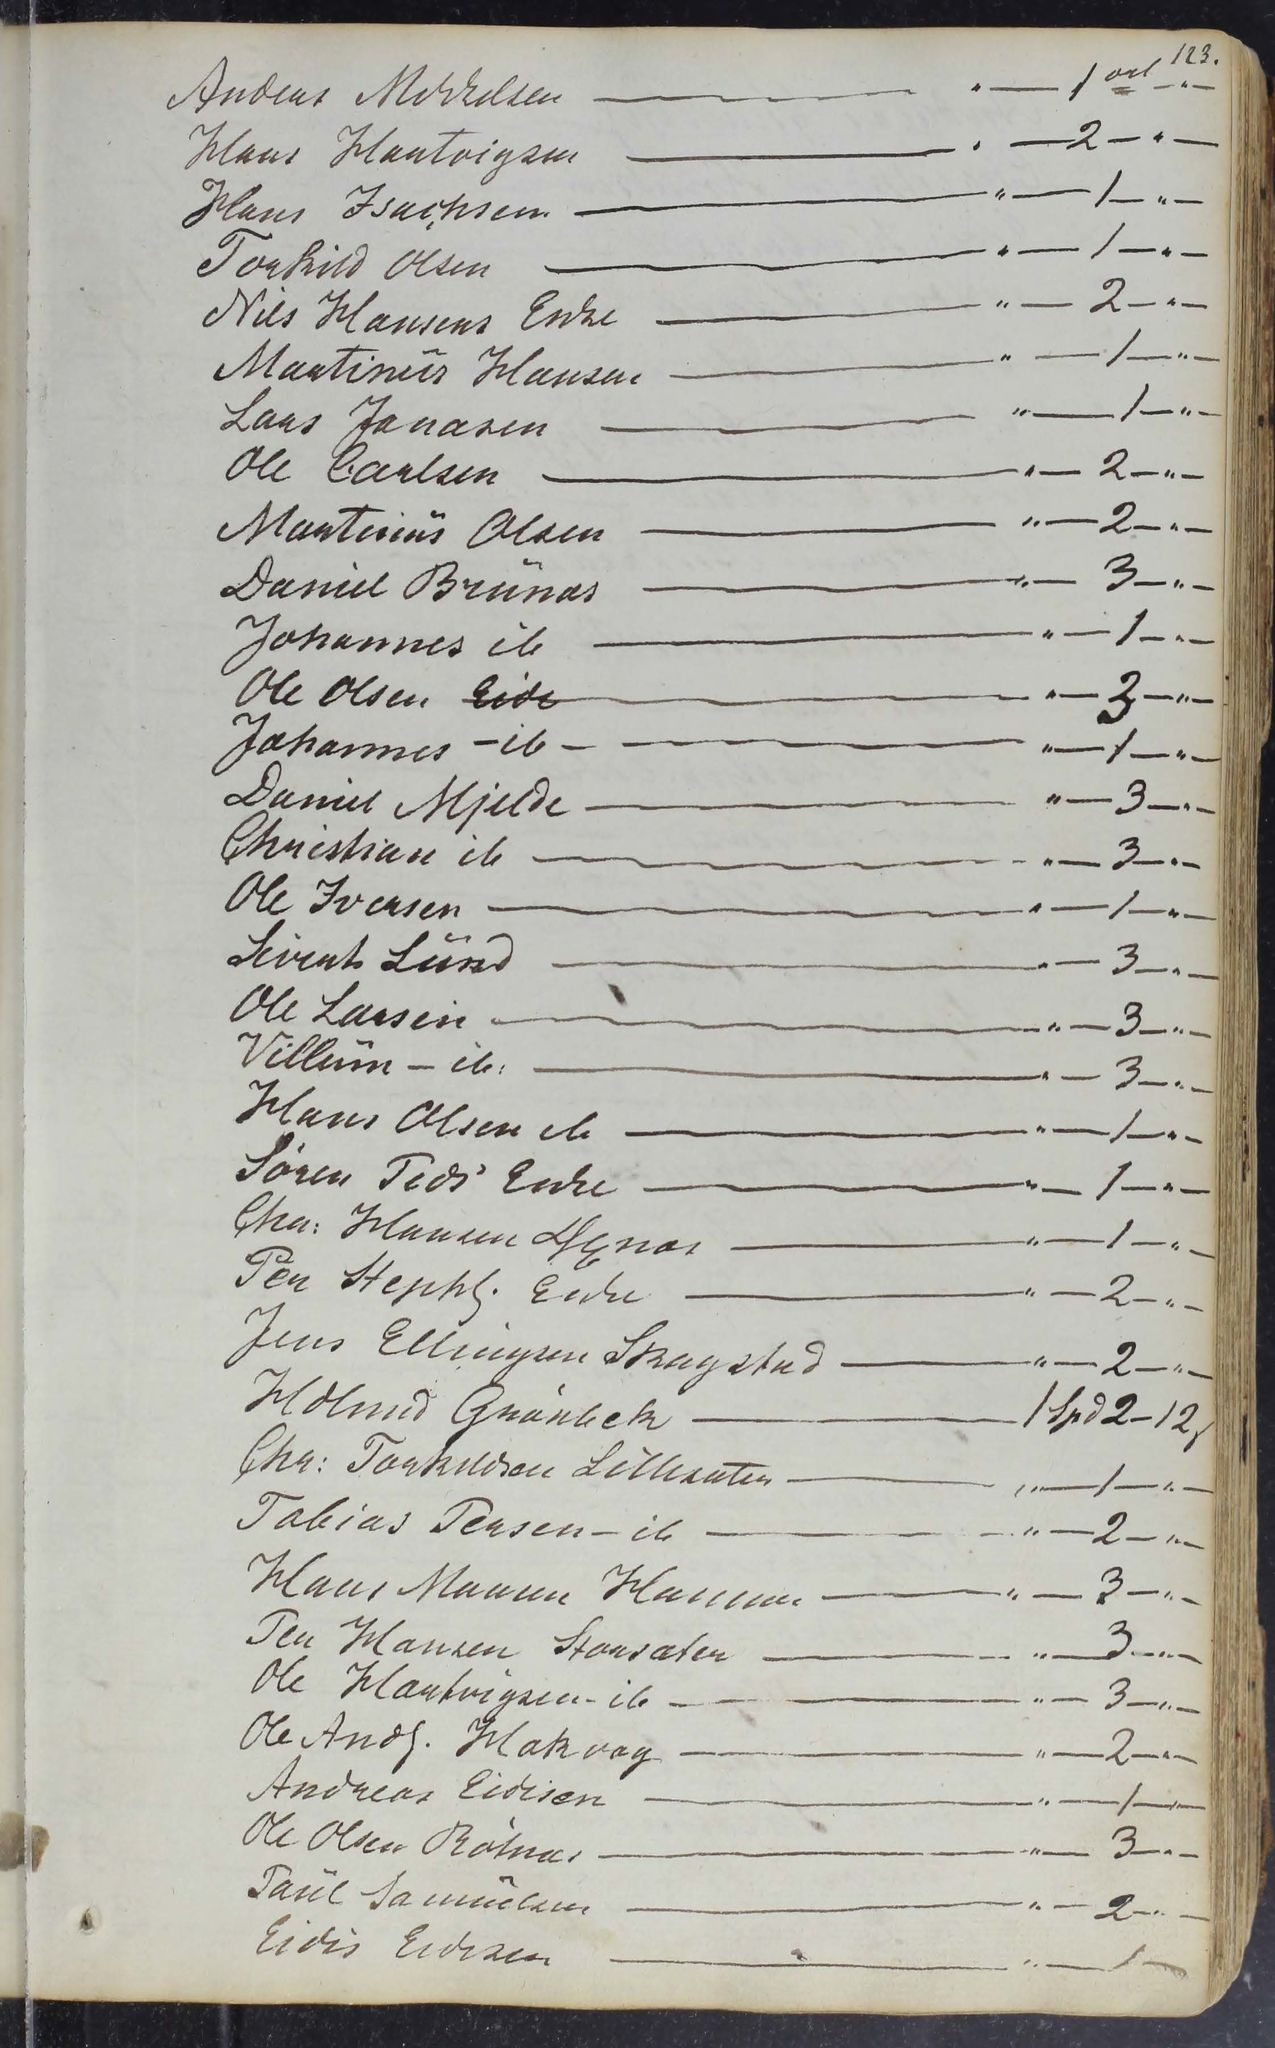 123.
Anders Mikkelsen — " — 1 ort — " —
Hans Hartvigsen — " — 2 — " —
Hans Isachsen — " — 1 — " —
Torkild Olsen — " — 1 — " —
Nils Hansens Enke — " — 2 — " —
Martinus Hansen — " — 1 — " —
Lars Jonasen — " — 1 — " —
Ole Carlsen — " — 2 — " —
Martinus Olsen — " — 2 — " —
Daniel Brunas — " — 3 — " —
Johannes ib — " — 1 — " —
Ole Olsen Eide — " — 3 — " —
Johannes - ib - — " — 1 — " —
Daniel Mjelde — " — 3 — " —
Christian ib — " — 3 — " —
Ole Iversen — " — 1 — " —
Sivert Lund — " — 3 — " —
Ole Larsen — " — 3 — " —
Villum - ib: — " — 3 — " —
Hans Olsen ib — " — 1 — " —
Sören Peds Enke — " — 1 — " —
Chr: Hansen — " — 1 — " —
Per Steph. Enke — " — 2 — " —
Jens Ellingsen Skagstad — " — 2 — " —
Grönbeck — 1 Spd 2 - 12
Chr: Torkildsen Lillesæter — " — 1 — " —
Tobias Persen - ib — " — 2 — " —
Hans — " — 3 — " —
Per Hansen Storsæter — " — 3 — " —
Ole Hartvigsen - ib — " — 3 — " —
Ole And. Hakvåg — " — 2 — " —
Andreas Eidisen — " — 1 — " —
Ole Olsen Rötnes — " — 3 — " —
Paul Samuelsen — " — 2 — " —
Eidis Eidisen — " — 1 —